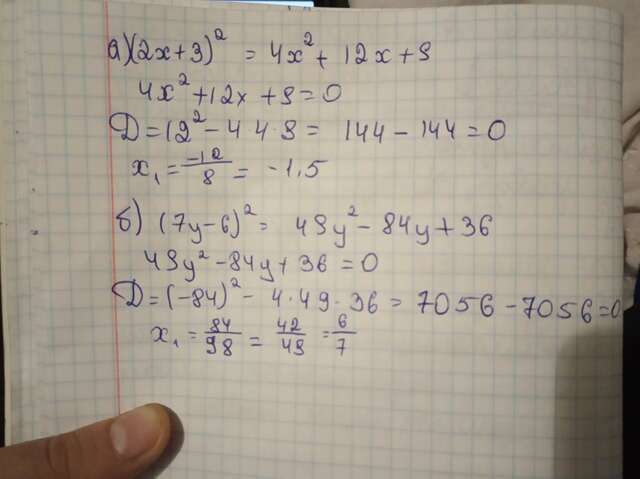 а)(2x+3)² = 4x²+ 12x+9
4x²+12x+9=0
Д=12²-4 4·9= 144-144=0
x₁=-12/8=-1,5
б) (7y-6)²= 49y²-84y+36
49y²-84y+36=0
Д=(-84)²-4·49·36=7056-7056=0
x₁=84/98=42/49=6/7